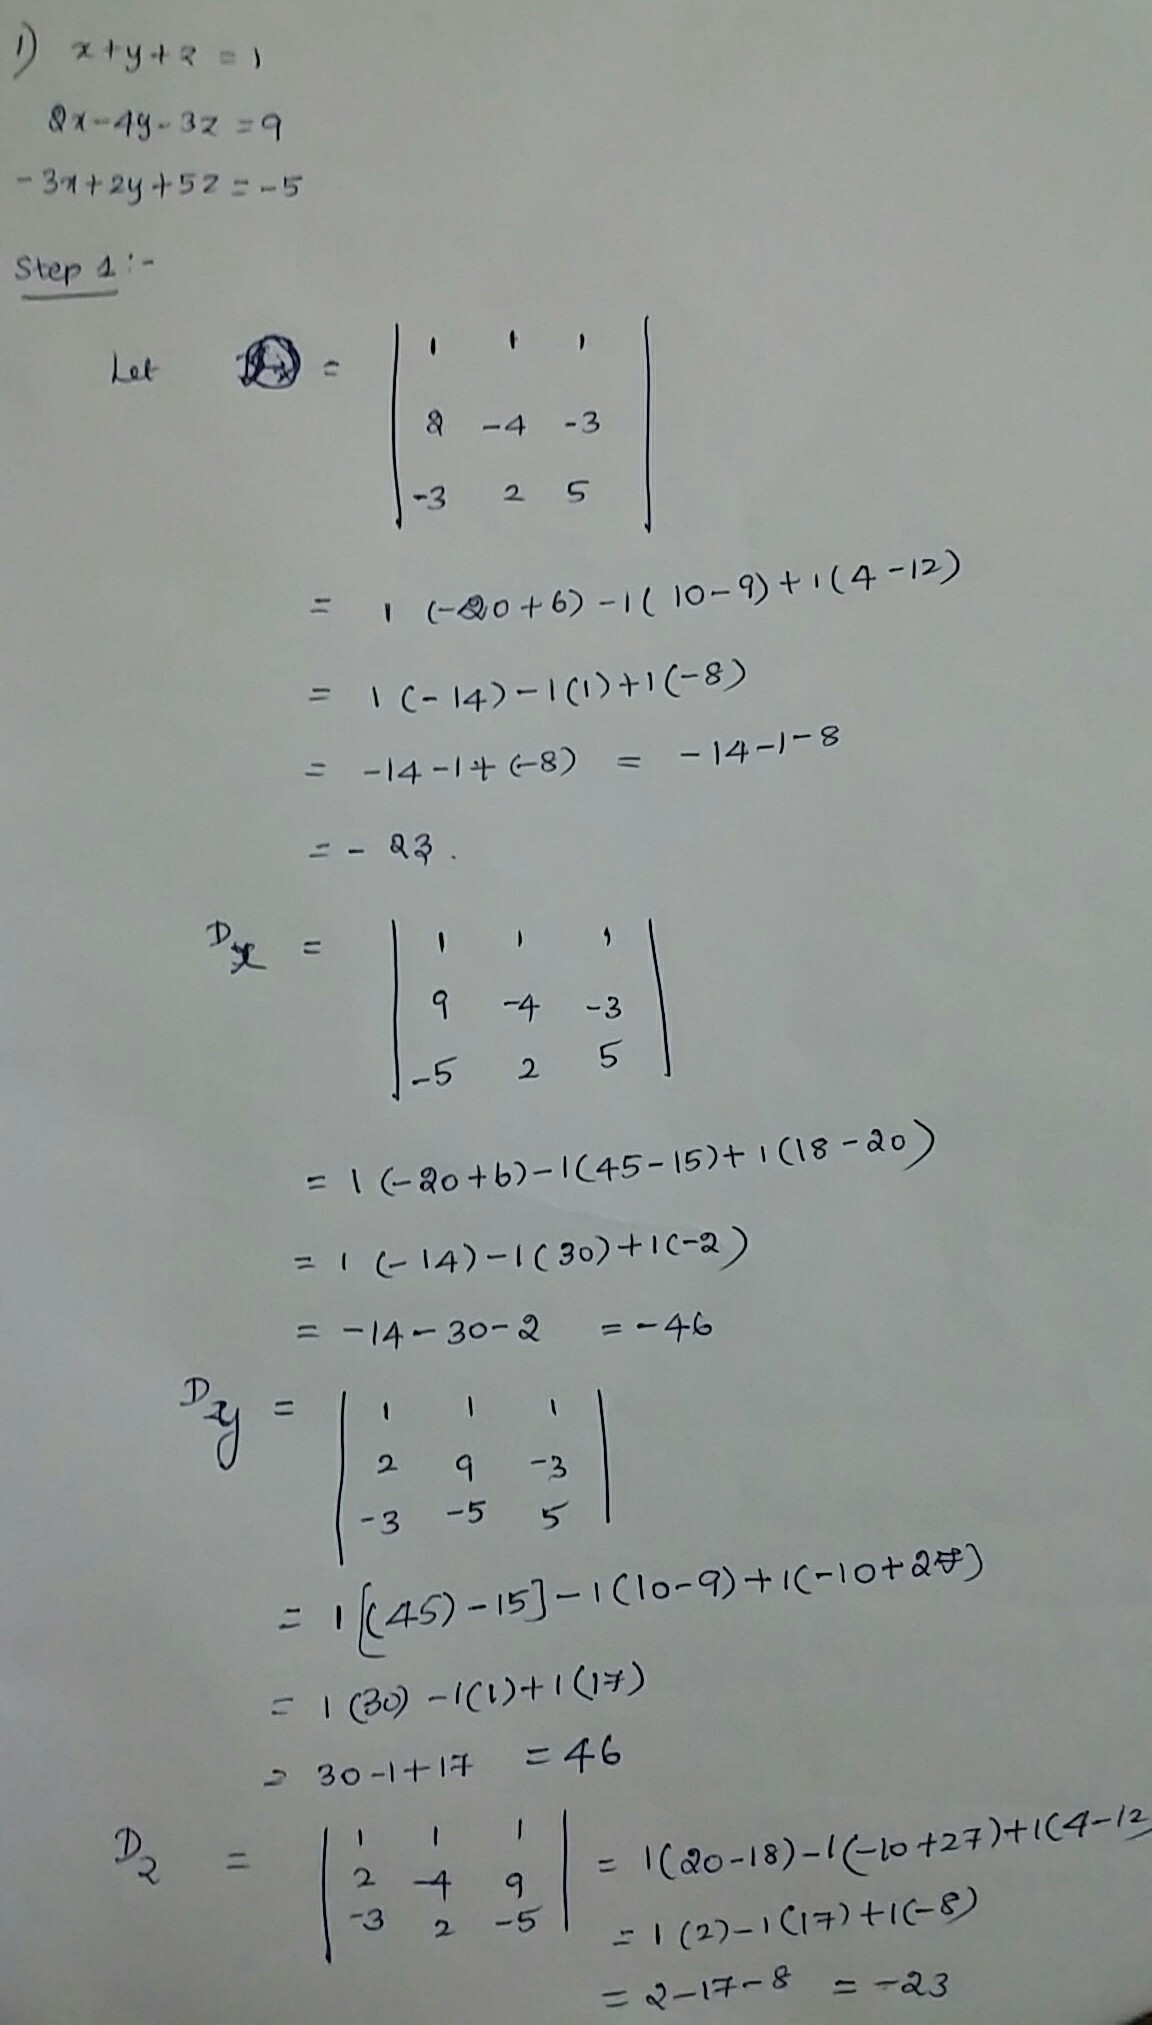 1) x+y+z = 1
2x-4y-3z = 9
-3x+2y+5z = -5
Step 1 :-
Let = | 1 1 1 |
| 2 -4 -3 |
| -3 2 5 |
= 1 (-20+6) -1( 10-9) + 1(4-12)
= 1 (-14) -1(1)+1(-8)
= -14-1+(-8) = -14-1-8
= - 23.
Dx = | 1 1 1 |
| 9 -4 -3 |
| -5 2 5 |
= 1 (-20+6)-1(45-15)+1(18-20)
= 1 (-14)-1(30)+1(-2)
= -14-30-2 = -46
Dy = | 1 1 1 |
| 2 9 -3 |
| -3 -5 5 |
= 1[(45)-15]-1(10-9)+1(-10+27)
= 1(30) -1(1)+1(17)
= 30-1+17 = 46
Dz = | 1 1 1 | = 1(20-18)-1(-10+27)+1(4-12)
| 2 -4 9 |
| -3 2 -5 | = 1(2)-1(17)+1(-8)
= 2-17-8 = -23